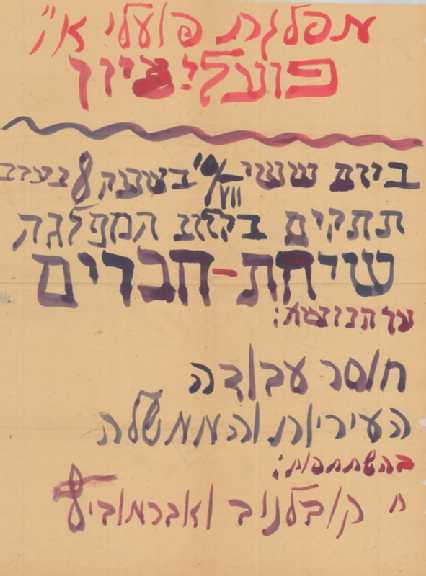 מפלגת פועלי א"י
פועלי ציון
ביום ששי בשעה 8 בערב
תתקים בקלוב המפלגה
שיחת-חברים
על הנושא:
חוסר עבודה
העיריות והממשלה
בהשתתפות:
ח קובלנוב ואברמוביץ